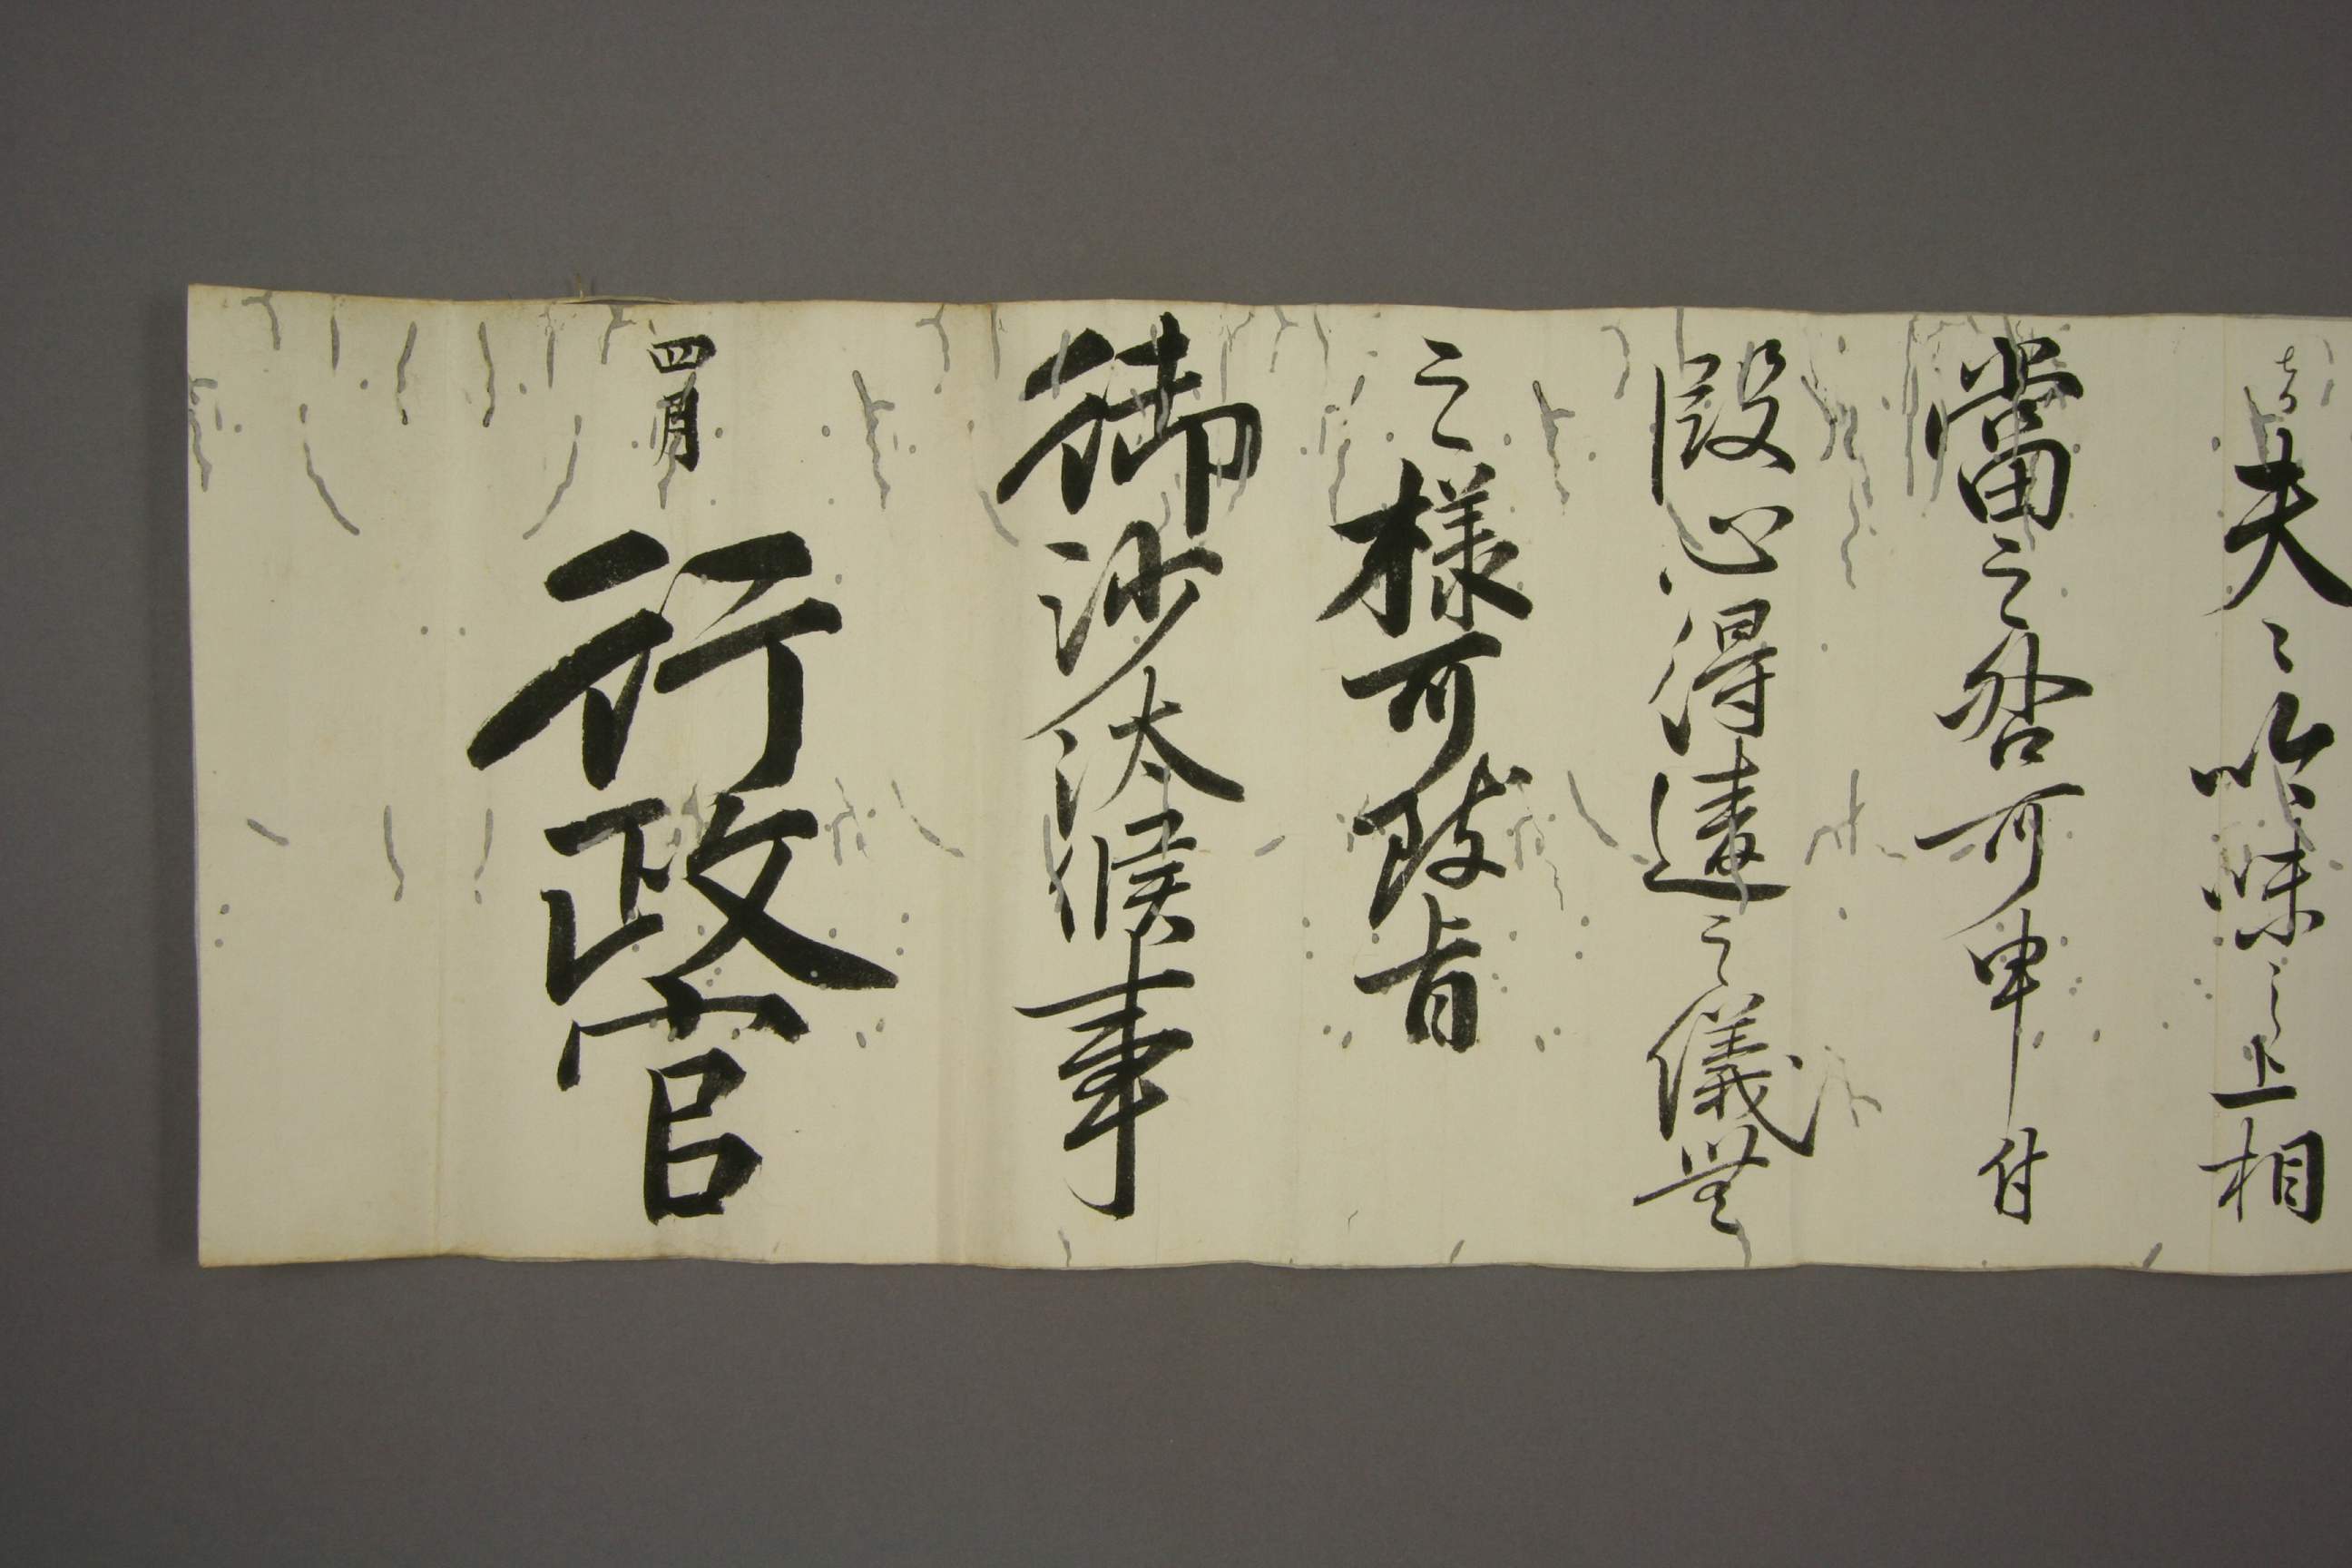 夫々吟味之上相
當之咎可申付
段心得違之儀無
之様可致旨
御沙汰候事
四月
行政官